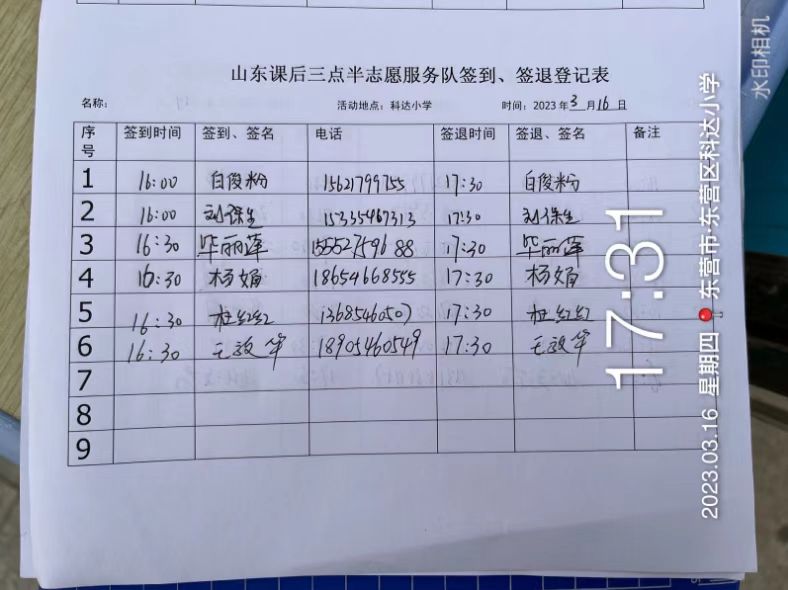 山东课后三点半志愿服务队签到、签退登记表
名称： 活动地点：科达小学 时间：2023年3月16日
序号 签到时间 签到、签名 电话 签退时间 签退、签名 备注
1 16:00 白俊粉 15621799755 17:30 白俊粉
2 16:00 刘保生 15335467313 17:30 刘保生
3 16:30 毕丽莲 15552759688 17:30 毕丽莲
4 16:30 杨娟 18654668555 17:30 杨娟
5 16:30 杜红红 13685460507 17:30 杜红红
6 16:30 王效华 18905460549 17:30 王效华
7
8
9
17:31
2023.03.16 星期四 东营市·东营区科达小学
水印相机